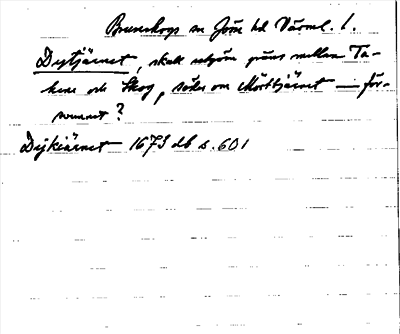 Brunskogs sn Jösse hd Värml. l.
Dytjärnet, skall utgöra gräns mellan Ta-
kene och Skog, söder om Mörttjärnet — för-
svunnet?
Dijkiärnet 1673 db s. 601